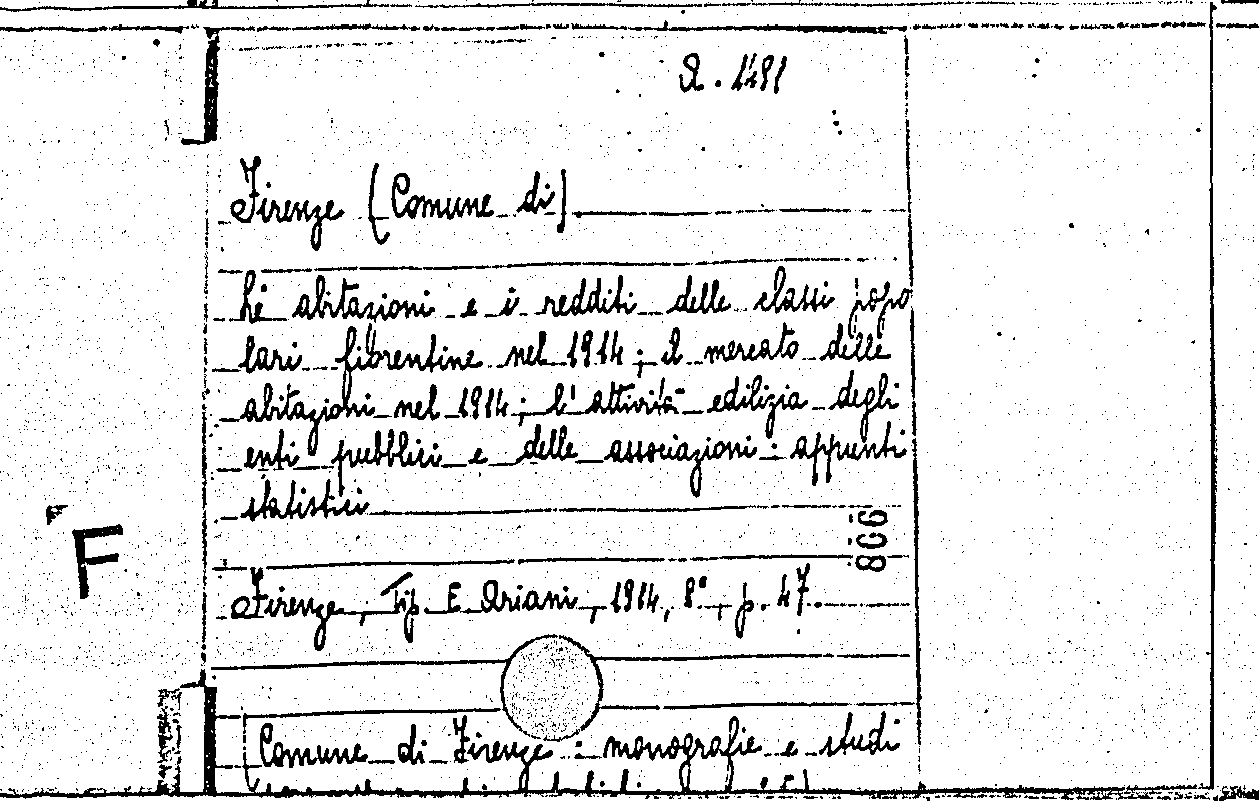 A. 1491
Firenze (Comune di)
Le abitazioni e i redditi delle classi popo
lari fiorentine nel 1914; il mercato delle
abitazioni nel 1914; l'attività edilizia degli
enti pubblici e delle associazioni: appunti
statistici
806
F
Firenze, Tip. E. Ariani, 1914, 8°, p. 47.
(Comune di Firenze: monografie e studi